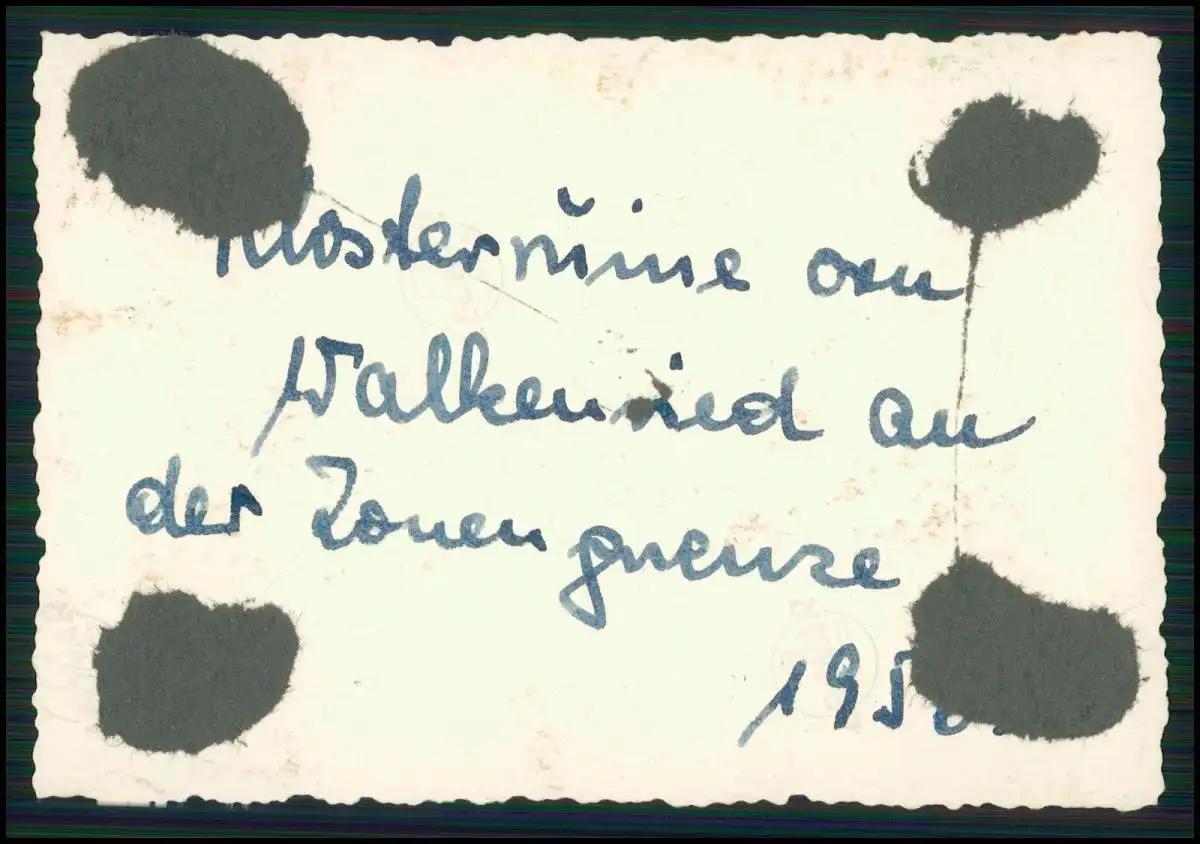 Klosterruine von
Walkenried an
der Zonengrenze